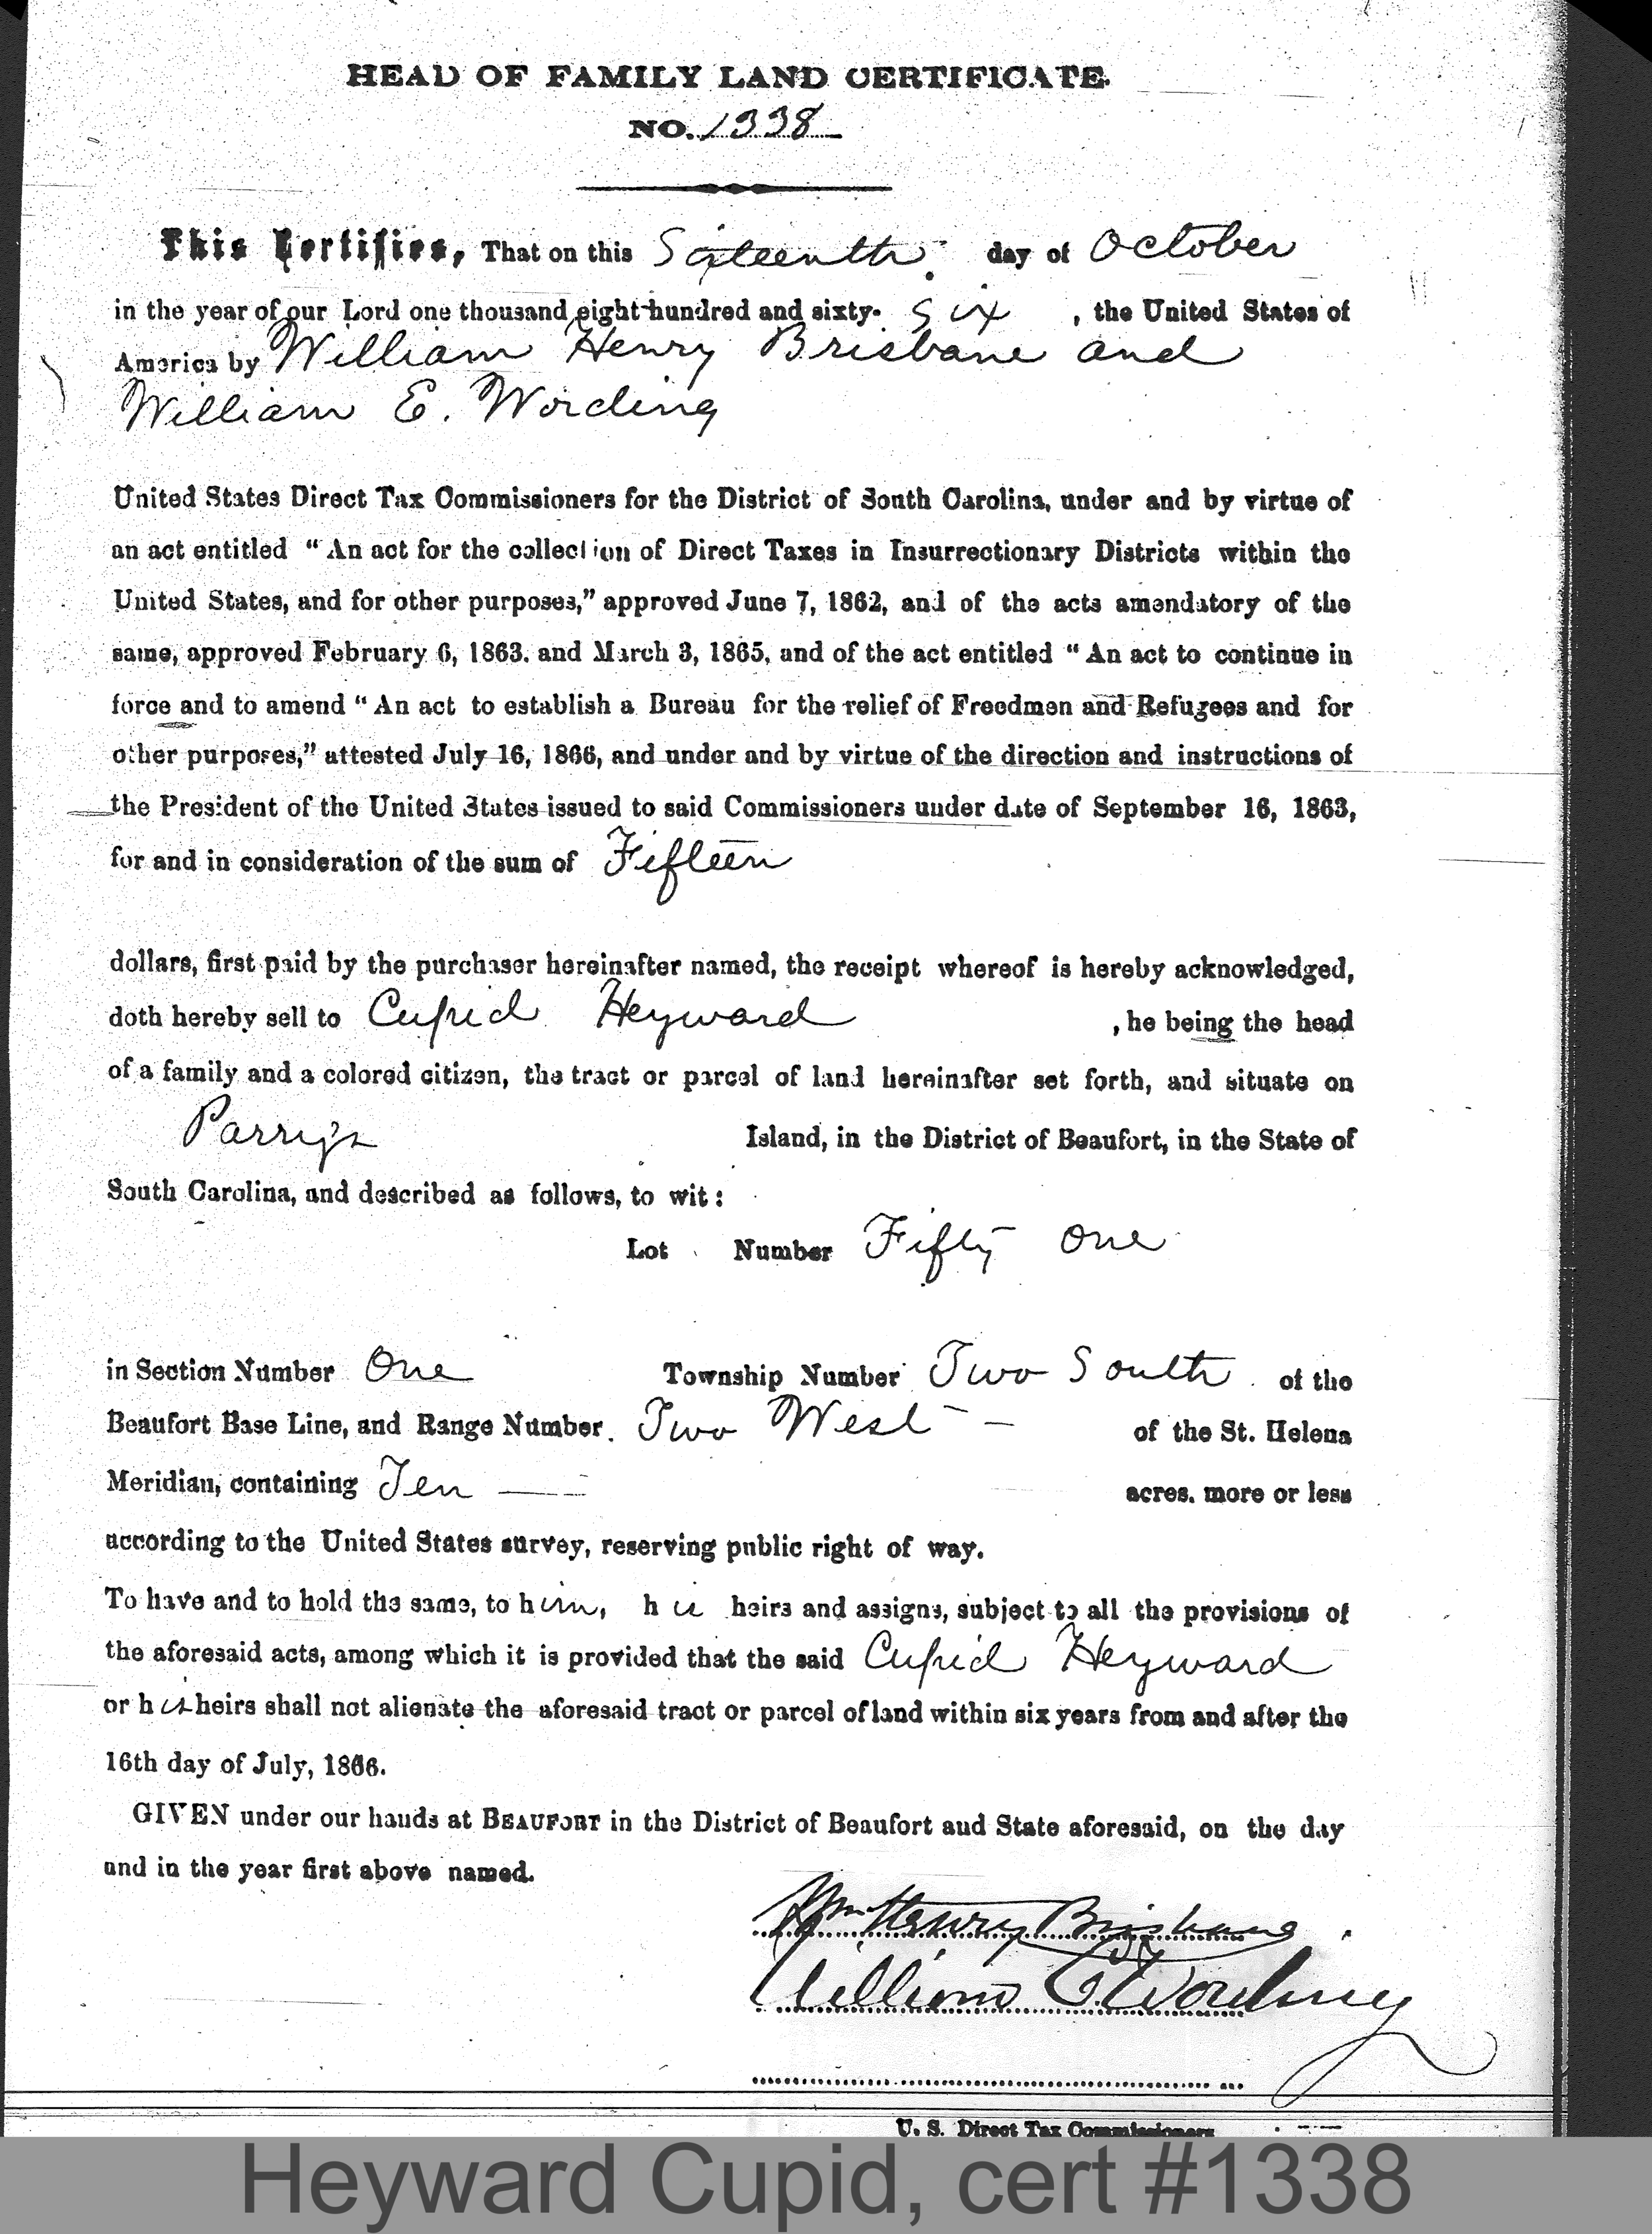 HEAD OF FAMILY LAND CERTIFICATE.
NO. 1338
This Certifies, That on this Sixteenth day of October
in the year of our Lord one thousand eight hundred and sixty- six , the United States of
America by William Henry Brisbane and
William E. Wording
United States Direct Tax Commissioners for the District of South Carolina, under and by virtue of
an act entitled “An act for the collection of Direct Taxes in Insurrectionary Districts within the
United States, and for other purposes,” approved June 7, 1862, and of the acts amendatory of the
same, approved February 6, 1863. and March 3, 1865, and of the act entitled “An act to continue in
force and to amend “An act to establish a Bureau for the relief of Freedmen and Refugees and for
other purposes,” attested July 16, 1866, and under and by virtue of the direction and instructions of
the President of the United States issued to said Commissioners under date of September 16, 1863,
for and in consideration of the sum of Fifteen
dollars, first paid by the purchaser hereinafter named, the receipt whereof is hereby acknowledged,
doth hereby sell to Cupid Heyward , he being the head
of a family and a colored citizen, the tract or parcel of land hereinafter set forth, and situate on
Parrys Island, in the District of Beaufort, in the State of
South Carolina, and described as follows, to wit:
Lot Number Fifty One
in Section Number One Township Number Two South of the
Beaufort Base Line, and Range Number. Two West – of the St. Helena
Meridian, containing Ten — acres, more or less
according to the United States survey, reserving public right of way.
To have and to hold the same, to him, his heirs and assigns, subject to all the provisions of
the aforesaid acts, among which it is provided that the said Cupid Heyward
or his heirs shall not alienate the aforesaid tract or parcel of land within six years from and after the
16th day of July, 1866.
GIVEN under our hands at BEAUFORT in the District of Beaufort and State aforesaid, on the day
and in the year first above named.
Wm Henry Brisbane
William E. Wording
U. S. Direct Tax Commissioners
Heyward Cupid, cert #1338